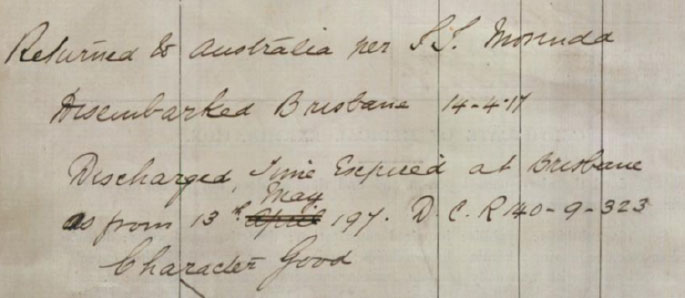 Returned to Australia per S.S. Morinda
Disembarked Brisbane 14-4-17
Discharged, Time Expired at Brisbane
May
as from 13th April 197. D.C.R 140-9-323
Character Good